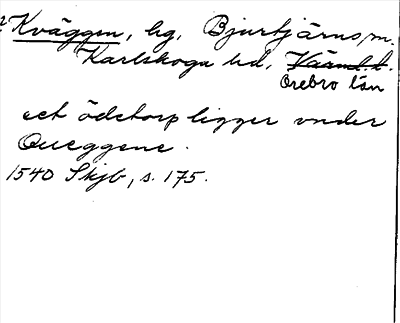 Kväggen, hg, Bjurtjärns, m.
Karlskoga hd, Värml. l.
Örebro län
ect ödetorp ligger vnder
Queggene.
1540 Skjb, s. 175.